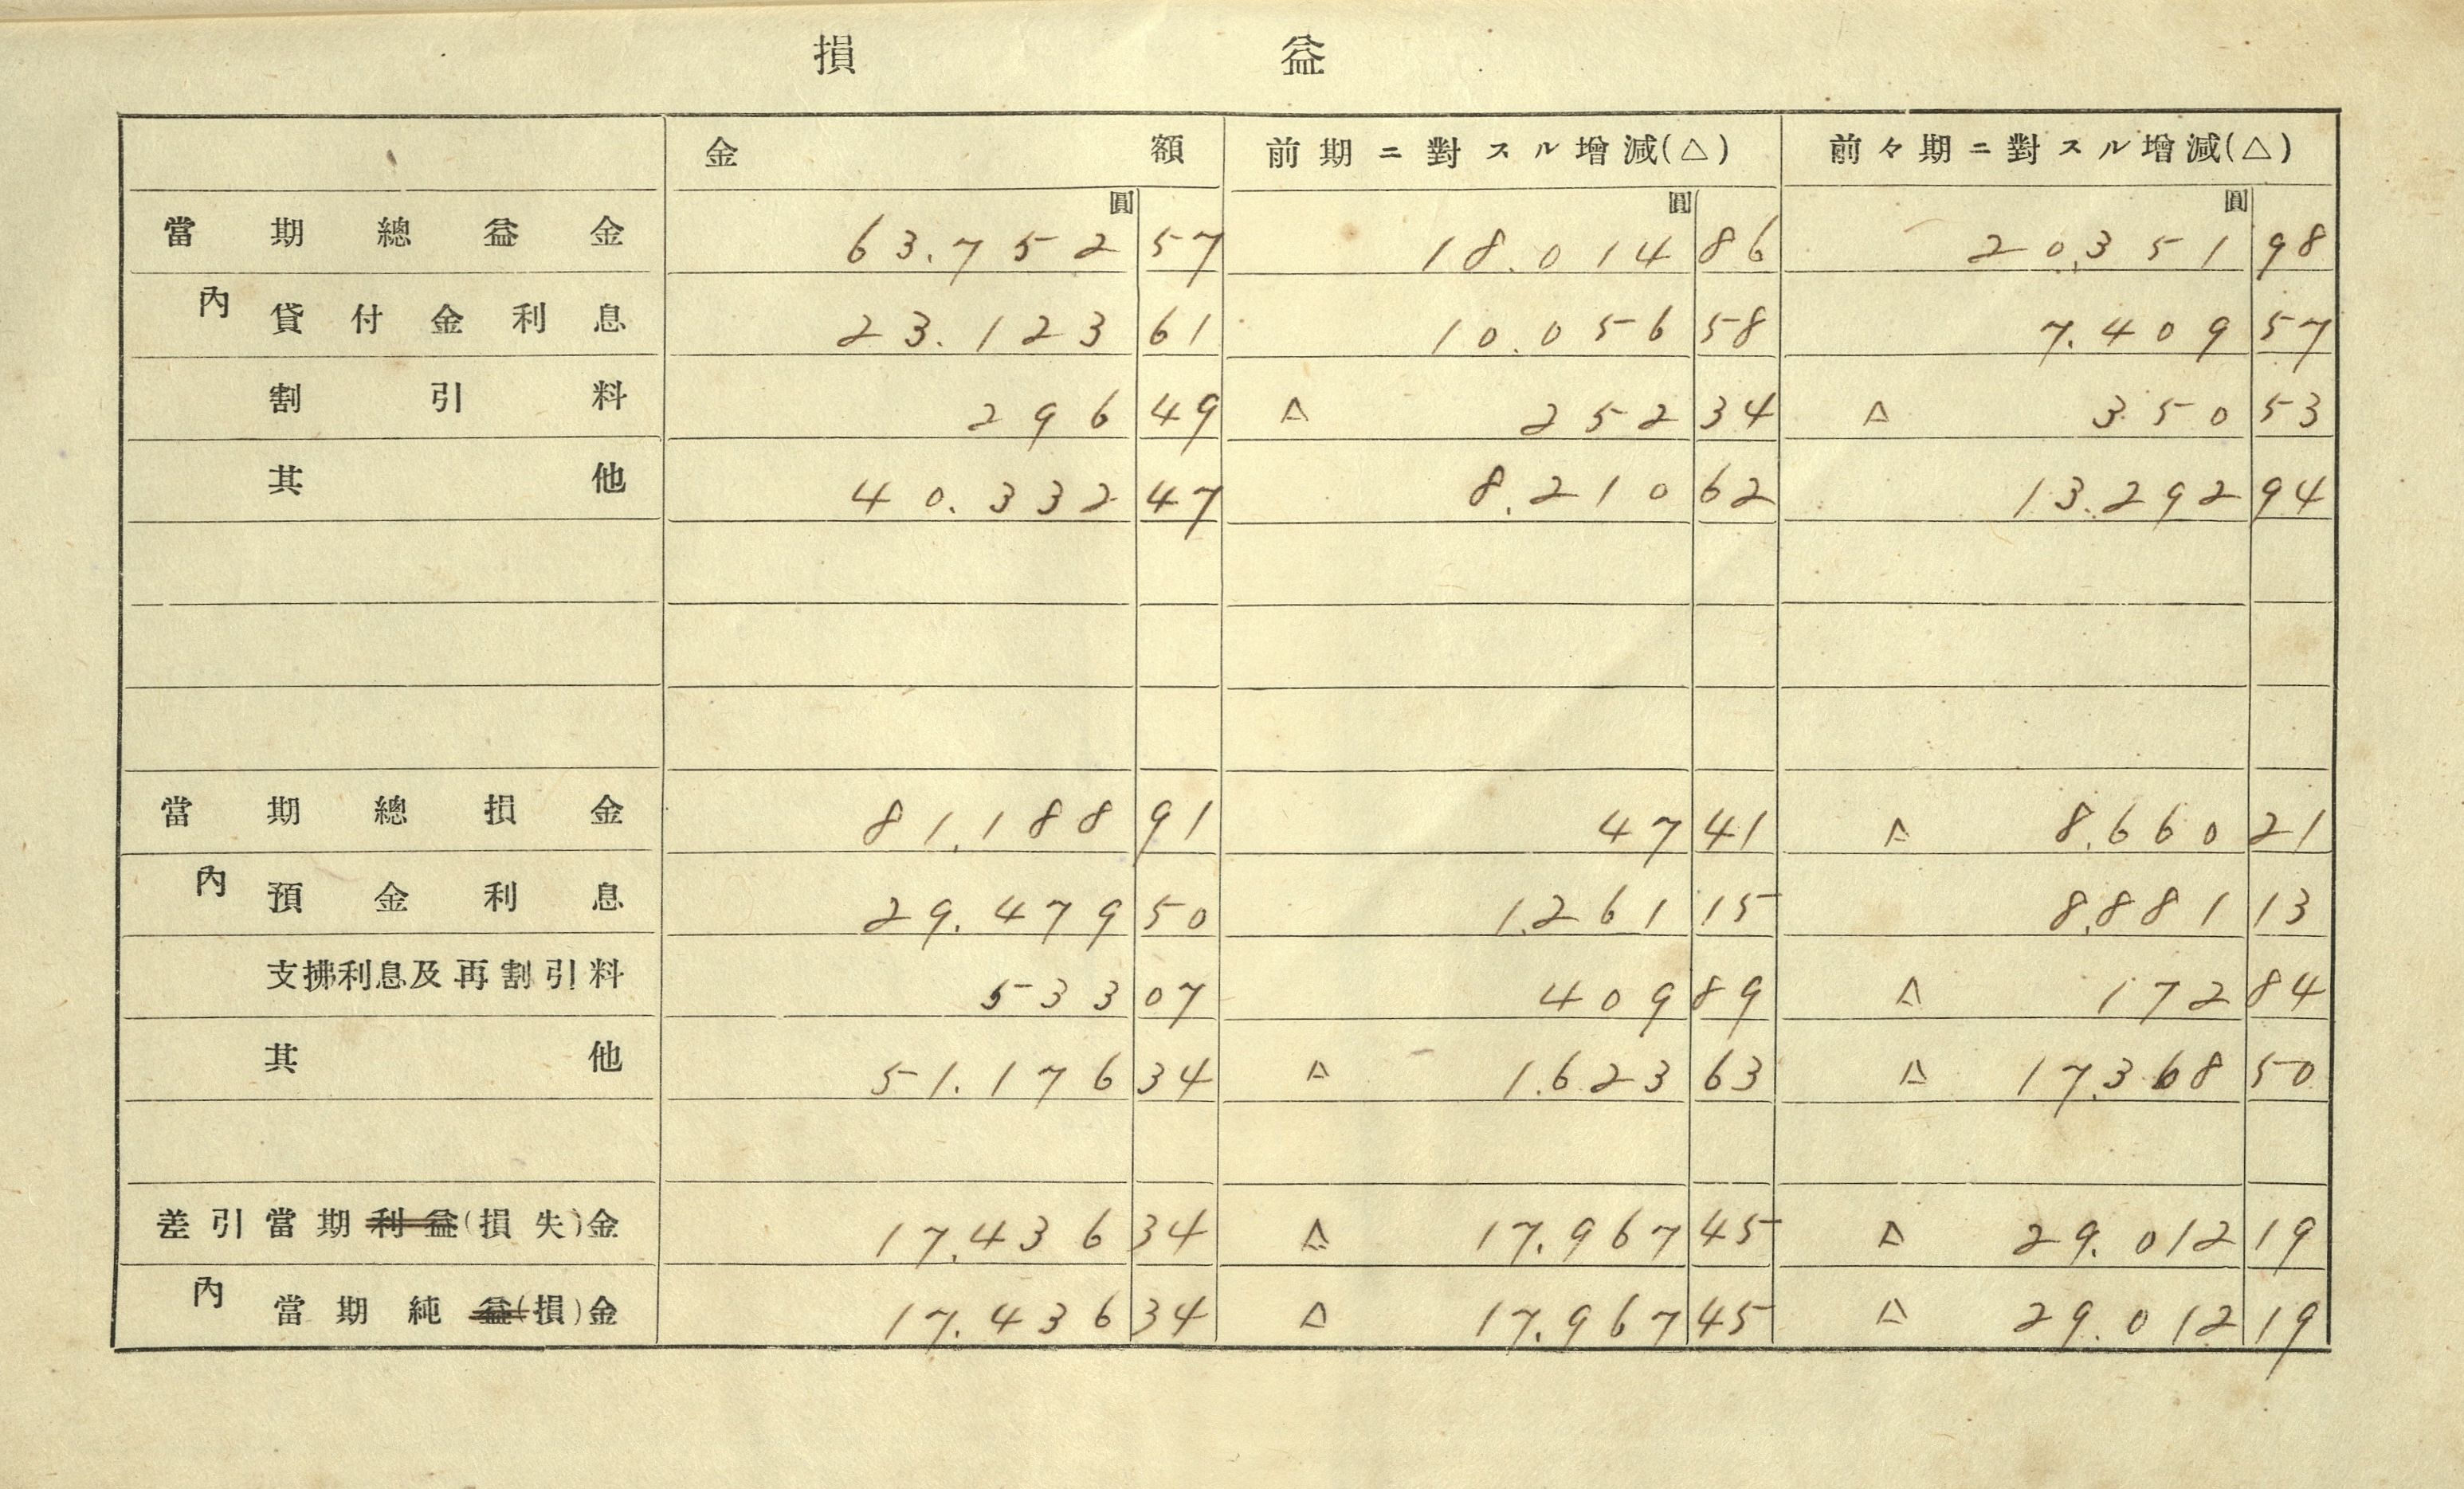 損益
金額 前期ニ對スル增減(△) 前々期ニ對スル增減(△)
圓 圓 圓
當期總益金 63.752 57 18.014 86 20.351 98
內 貸付金利息 23.123 61 10.056 58 7.409 57
割引料 296 49 △ 252 34 △ 350 53
其他 40.332 47 8.210 62 13.292 94
當期總損金 81.188 91 47 41 △ 8.660 21
內 預金利息 29.479 50 1.261 15 8.881 13
支拂利息及再割引料 533 07 409 89 △ 172 84
其他 51.176 34 △ 1.623 63 △ 17.368 50
差引當期利益(損失)金 17.436 34 △ 17.967 45 △ 29.012 19
內 當期純益(損)金 17.436 34 △ 17.967 45 △ 29.012 19